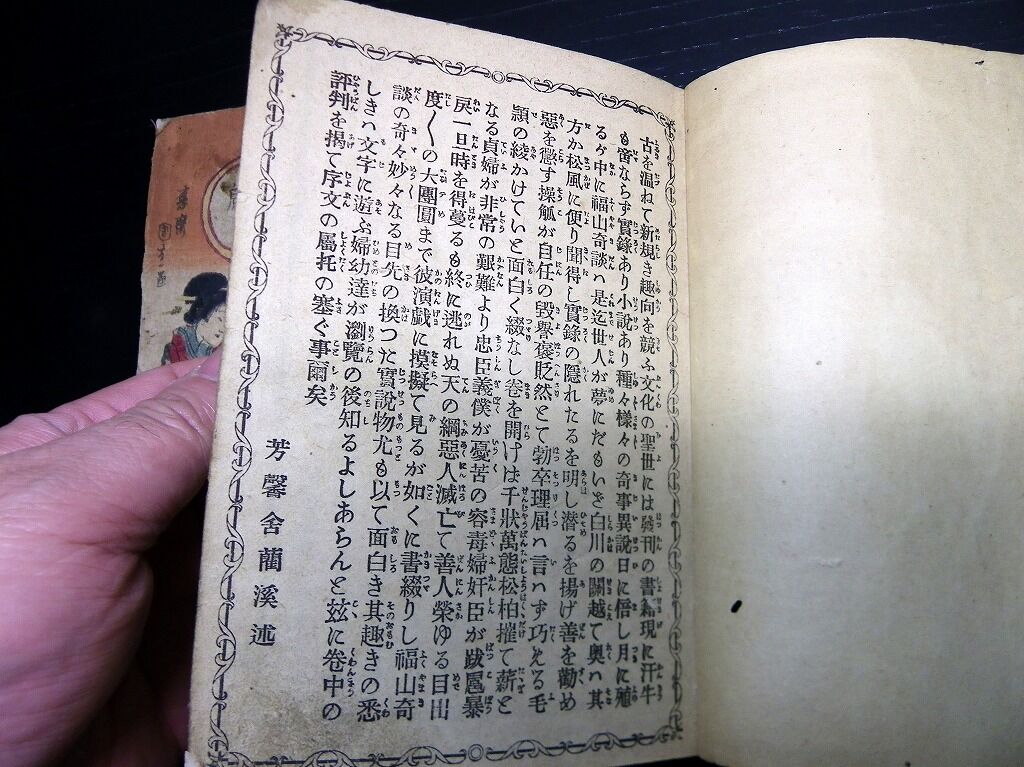 古を温ねて新規き趣向を競ふ文化の聖世には發刊の書籍現に汗牛
も啻ならず實錄あり小說あり種々樣々の奇事異說日に倍し月に殖
るヶ中に福山奇談ハ是迄世人が夢にだもいさ白川の關越て奥ハ其
方か松風に便り聞得し實錄の隱れたるを明し潜るを揚げ善を勸め
惡を懲す操觚が自任の毀譽褒貶然とて勃卒理屈ハ言ハず巧える毛
頴の綾かけていと面白く綴なし卷を開けば千狀萬態松柏摧て薪と
なる貞婦が非常の艱難より忠臣義僕が憂苦の容毒婦奸臣が跋扈暴
戾一旦時を得蔓るも終に逃れぬ天の綱惡人滅亡て善人榮ゆる目出
度〱の大團圓まで彼演戯に摸擬て見るが如くに書綴りし福山奇
談の奇々妙々なる目先の換つた實說物尤も以て面白き其趣きの悉
しきハ文字に遊ぶ婦幼達が瀏覽の後知るよしあらんと玆に卷中の
評判を揭て序文の屬托の塞ぐ事爾矣
芳馨舍藺溪述